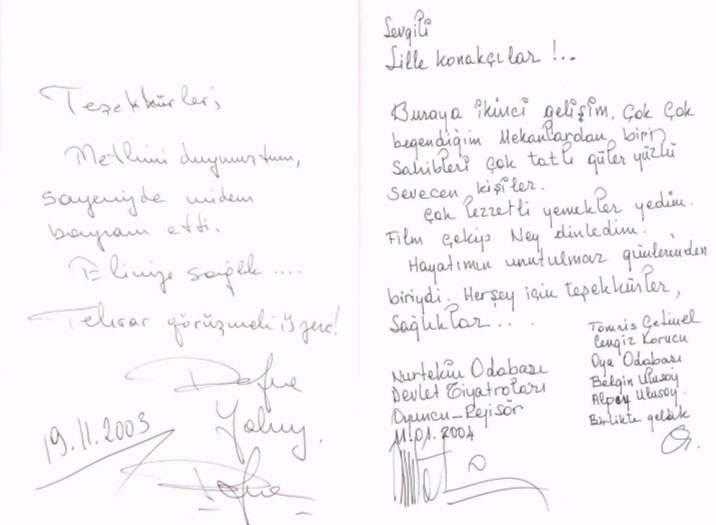 Teşekkürler;
Methini duymuştum,
sayenizde midem
bayram etti.
Elinize sağlık ....
Tekrar görüşmek üzere!
Defne
Yalnız
19.11.2003
Defne
Sevgili
Lille konakçılar !..
Buraya ikinci gelişim. Çok Çok
beğendiğim Mekanlardan biri,
Sahibleri Çok tatlı güler yüzlü
sevecen kişiler.
Çok lezzetli yemekler yedim.
Film çekip Ney dinledim.
Hayatımın unutulmaz günlerinden
biriydi. Herşey için teşekkürler,
Sağlıklar...
Nurtekin Odabaşı
Devlet Tiyatroları
Oyuncu-Rejisör
11.01.2004
Tomris Çetinel
Cengiz Korucu
Oya Odabaşı
Belgin Ulusoy
Alpay Ulusoy.
Birlikte geldik